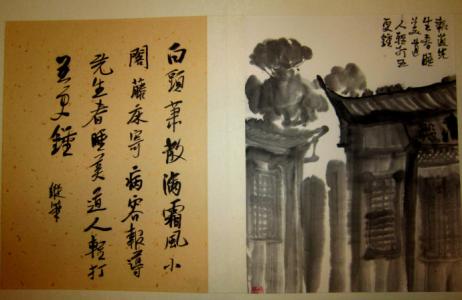 白頭蕭散滿霜風小
閣藤床寄病容報導
先生春睡美道人輕打
五更鐘
縱筆
報道先
生春睡
美道
人輕打五
更鐘